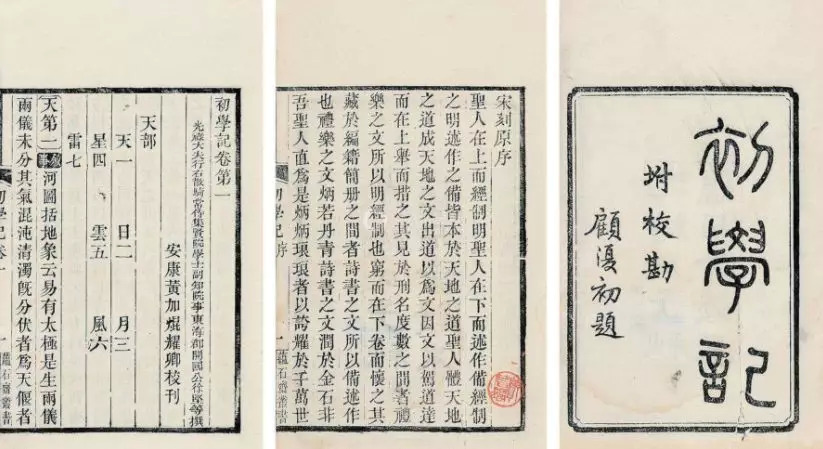 初學記
坿校勘
顧復初題
宋刻原序
聖人在上而經制明聖人在下而述作備經制
之明述作之備皆本於天地之道聖人體天地
之道成天地之文出道以爲文因文以駕道達
而在上舉而措之其見於刑名度數之間者禮
樂之文所以明經制也窮而在下卷而懷之其
藏於編籍簡册之間者詩書之文所以備述作
也禮樂之文炳若丹青詩書之文潤於金石非
吾聖人直爲是炳炳琅琅者以誇耀於千萬世
初學記 序 一 蘊石齋叢書
初學記卷第一
光祿大夫行右散騎常侍集賢院學士副知院事東海郡開國公徐堅等撰
安康黃加焜耀卿校刊
天部
天一 日二 月三
星四 雲五 風六
雷七
天第一 敘事 河圖括地象云易有太極是生兩儀
兩儀未分其氣混沌清濁旣分伏者爲天偃者
初學記卷一 蘊石齋叢書